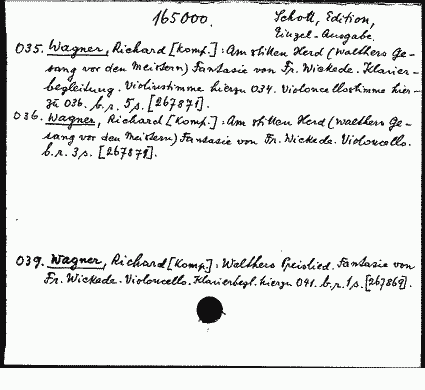 165000.
Schott, Edition,
Einzel-Ausgabe.
035. Wagner, Richard [Komp.]: Am stillen Herd (Walthers Ge-
sang vor den Meistern) Fantasie von Fr. Wickede. Klavier-
begleitung. Violinstimme hierzu 034. Violoncellostimme hier-
zu 036. b. r. 5 s. [267871].
036. Wagner, Richard [Komp.]: Am stillen Herd (Walthers Ge-
sang vor den Meistern) Fantasie von Fr. Wickede. Violoncello.
b. r. 3 s. [267871].
039. Wagner, Richard [Komp.]: Walthers Preislied. Fantasie von
Fr. Wickede. Violoncello. Klavierbegl. hierzu 041. b. r. 1 s. [267869].